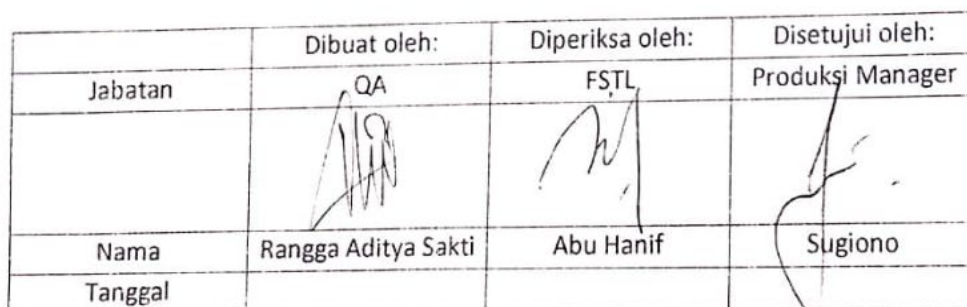 Dibuat oleh: Diperiksa oleh: Disetujui oleh:
Jabatan QA FSTL Produksi Manager
Nama Rangga Aditya Sakti Abu Hanif Sugiono
Tanggal